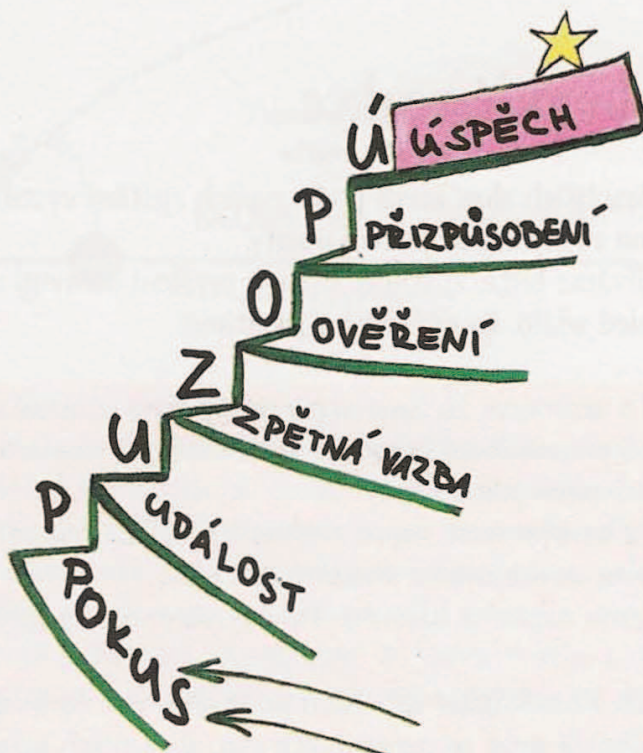 Ú ÚSPĚCH
P PŘIZPŮSOBENÍ
O OVĚŘENÍ
Z ZPĚTNÁ VAZBA
U UDÁLOST
P POKUS